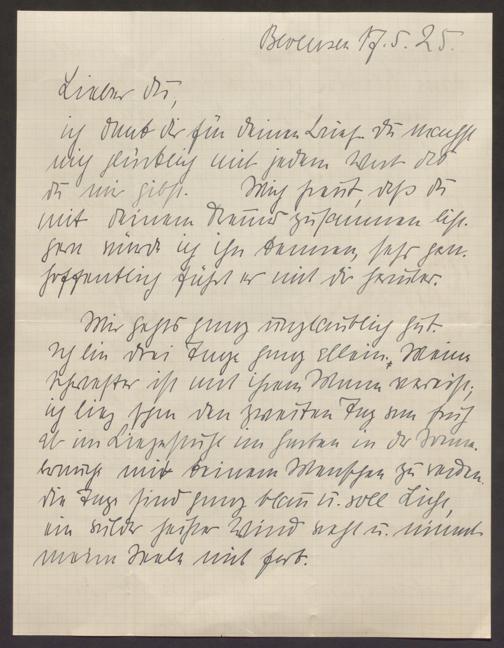 17.5.25.
Lieber Du,
ich danke dir für deinen Brief. Du machst
mich glücklich mit jedem Wort das
du mir gibst. Mich freut, daß du
mit deinem Freund zusammen bist.
gern würde ich ihn kennen, sehr gern.
hoffentlich fährt er mit dir herüber.
Mir gehts ganz unglaublich gut.
Ich bin drei Tage ganz allein. Meine
Schwester ist mit ihrem Mann verreist;
ich lieg schon den zweiten Tag von früh
ab im Liegestuhl im Garten in der Sonne
mit keinem Menschen zu reden.
die Tage sind ganz blau u. voll Licht,
ein wilder heißer Wind weht u. nimmt
meine Seele mit fort.